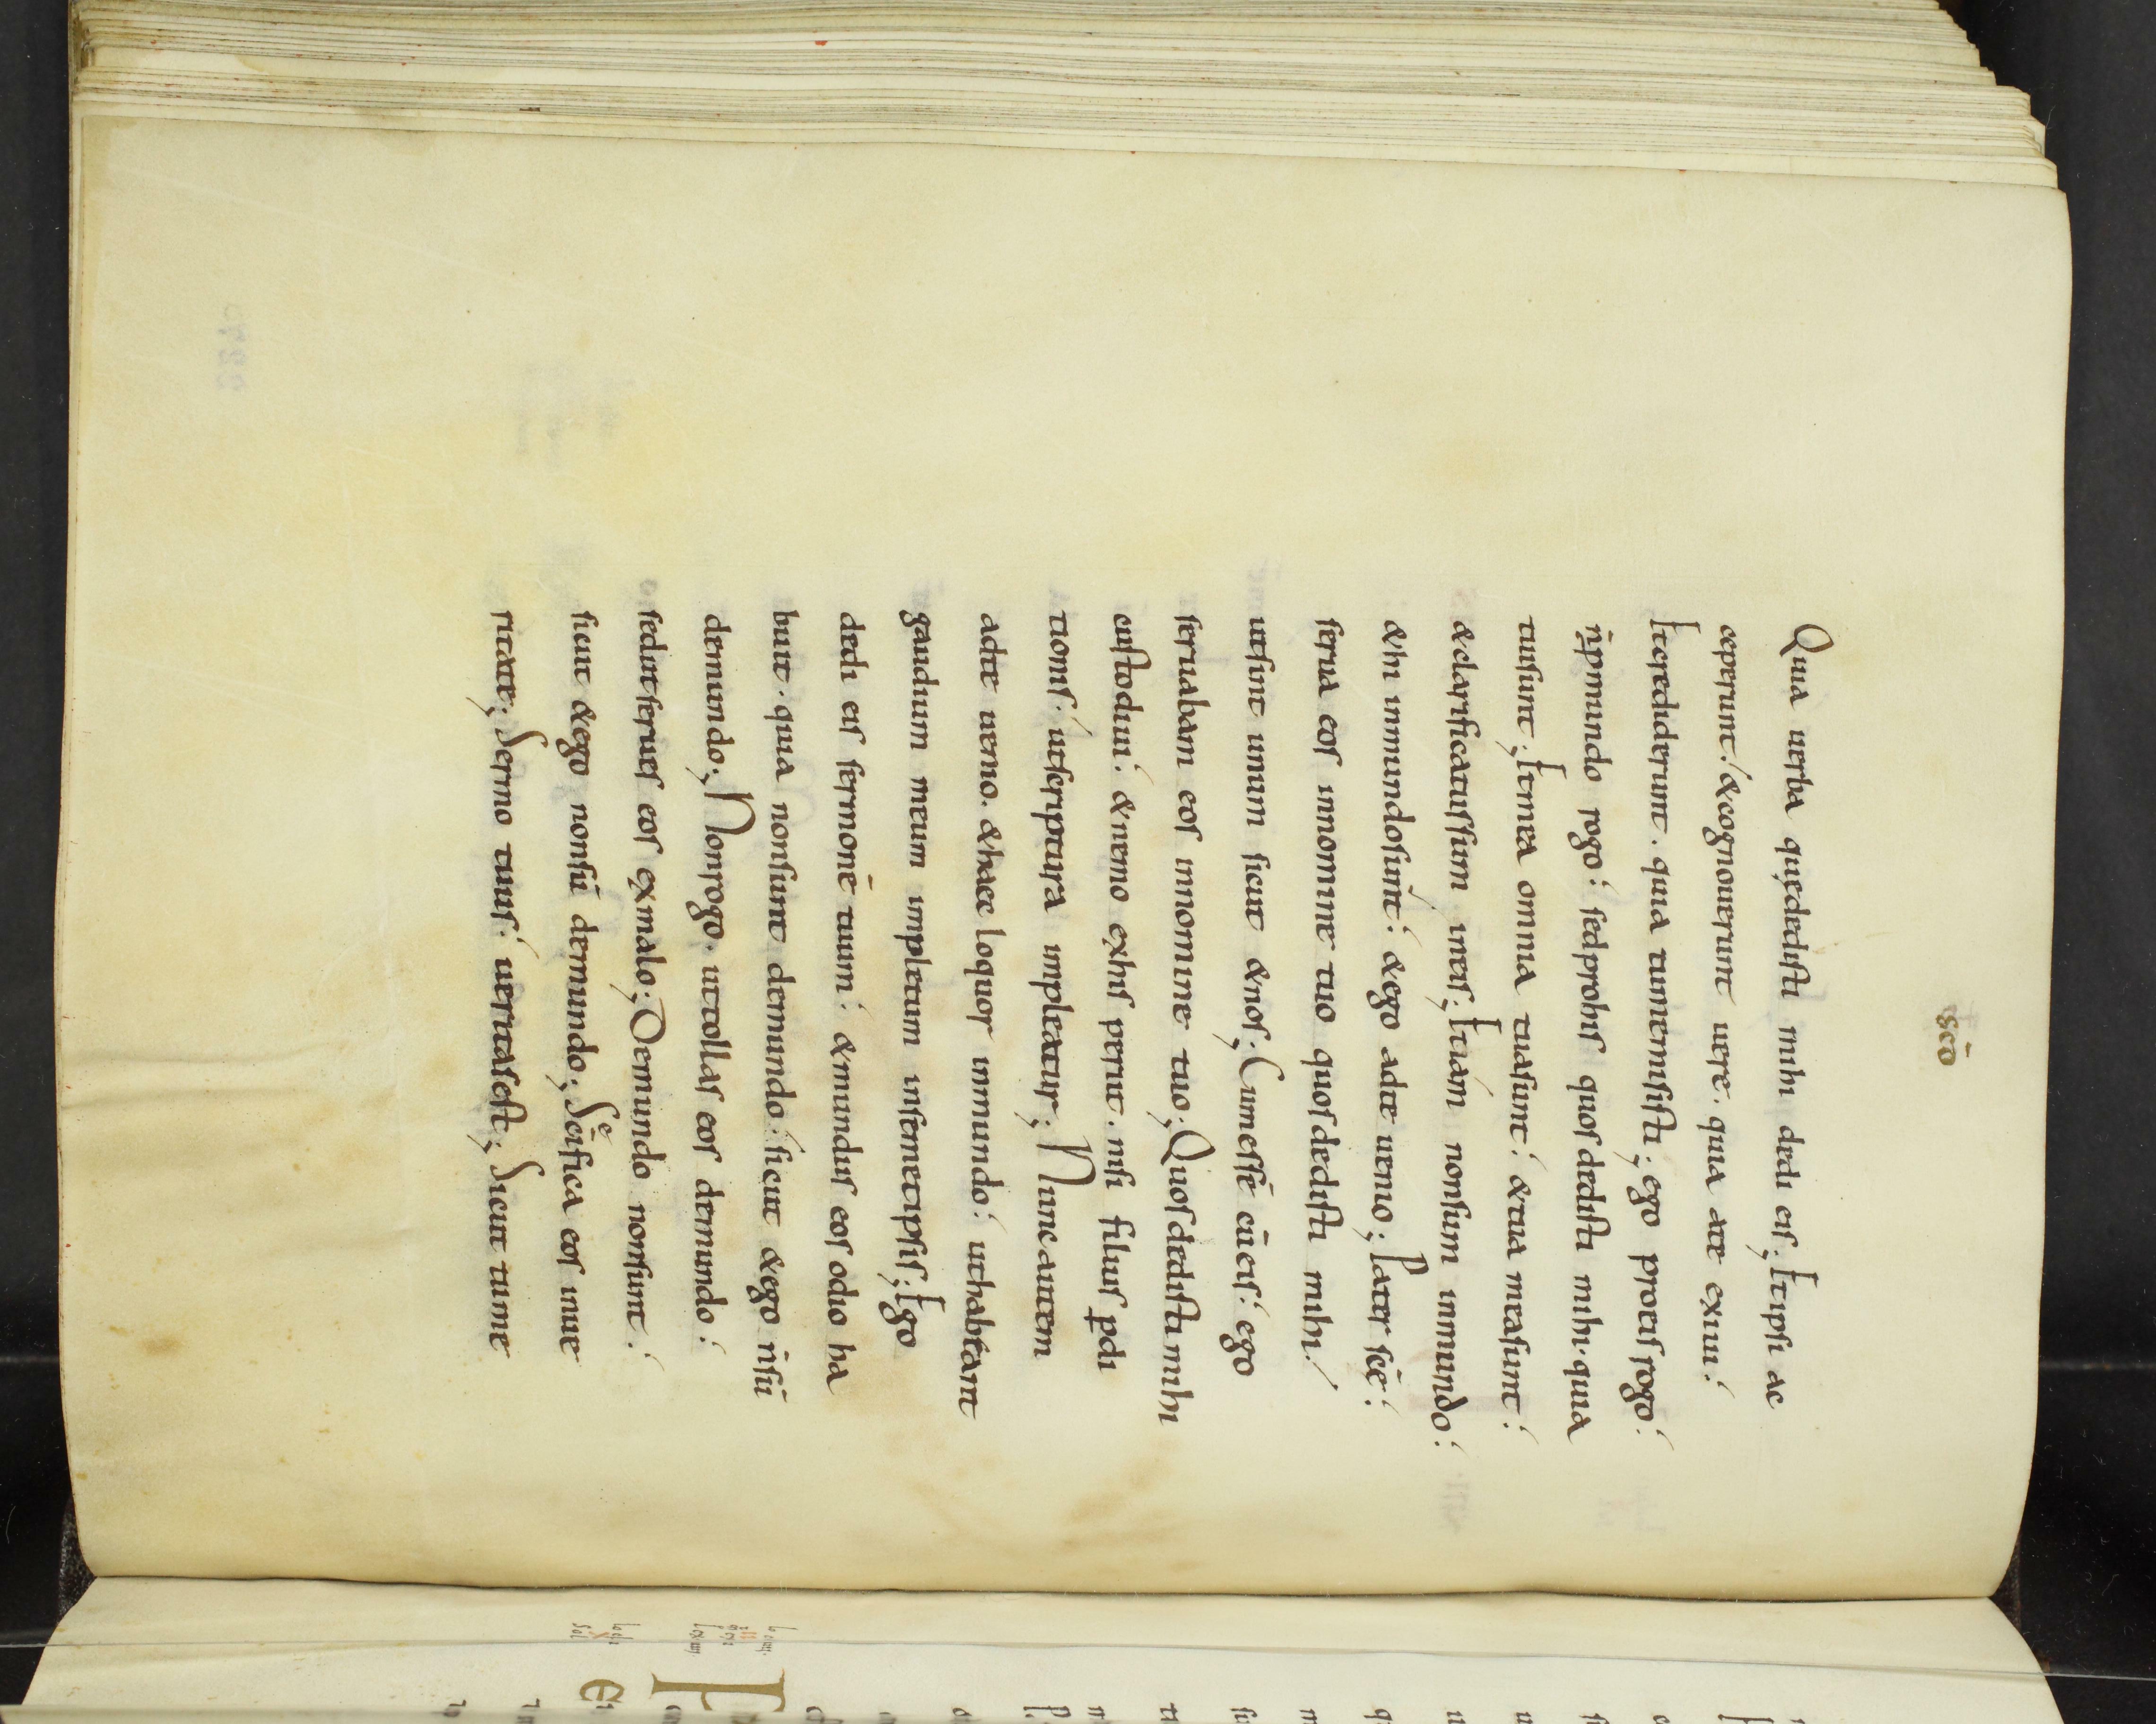 scd̄
Quia uerba quędedisti mihi dedi eis; Etipsi ac
ceperunt: &cognouerunt uere. quia ate exiui:
Etcrediderunt. quia tumemisisti; ego proeis rogo:
n̄pmundo rogo: sedprohis quos dedisti mihi. quia
tuisunt; Etmea omnia tuasunt: &tua measunt:
&clarificatussum ineis; Etiam nonsum inmundo:
&hi inmundosunt: &ego adte uenio; Pater sc̄e:
serua eos innomine tuo quosdedisti mihi:
utsint unum sicut &nos; Cumessē cūeis: ego
seruabam eos innomine tuo; Quosdedisti mihi
custodiui: &nemo exhis periit. nisi filius ꝑdi
tionis: utscriptura impleatur; Nuncautem
adte uenio. &haec loquor inmundo: uthabeant
gaudium meum impletum insemetipsis; Ego
dedi eis sermonē tuum: &mundus eos odio ha
buit. quia nonsunt demundo: sicut &ego n̄sū
demundo; Nonrogo. uttollas eos demundo:
sedutserues eos exmalo; Demundo nonsunt:
sicut &ego nonsū demundo; Sc̄ifica eos inue
ritate; Sermo tuus: ueritasest; Sicut tume